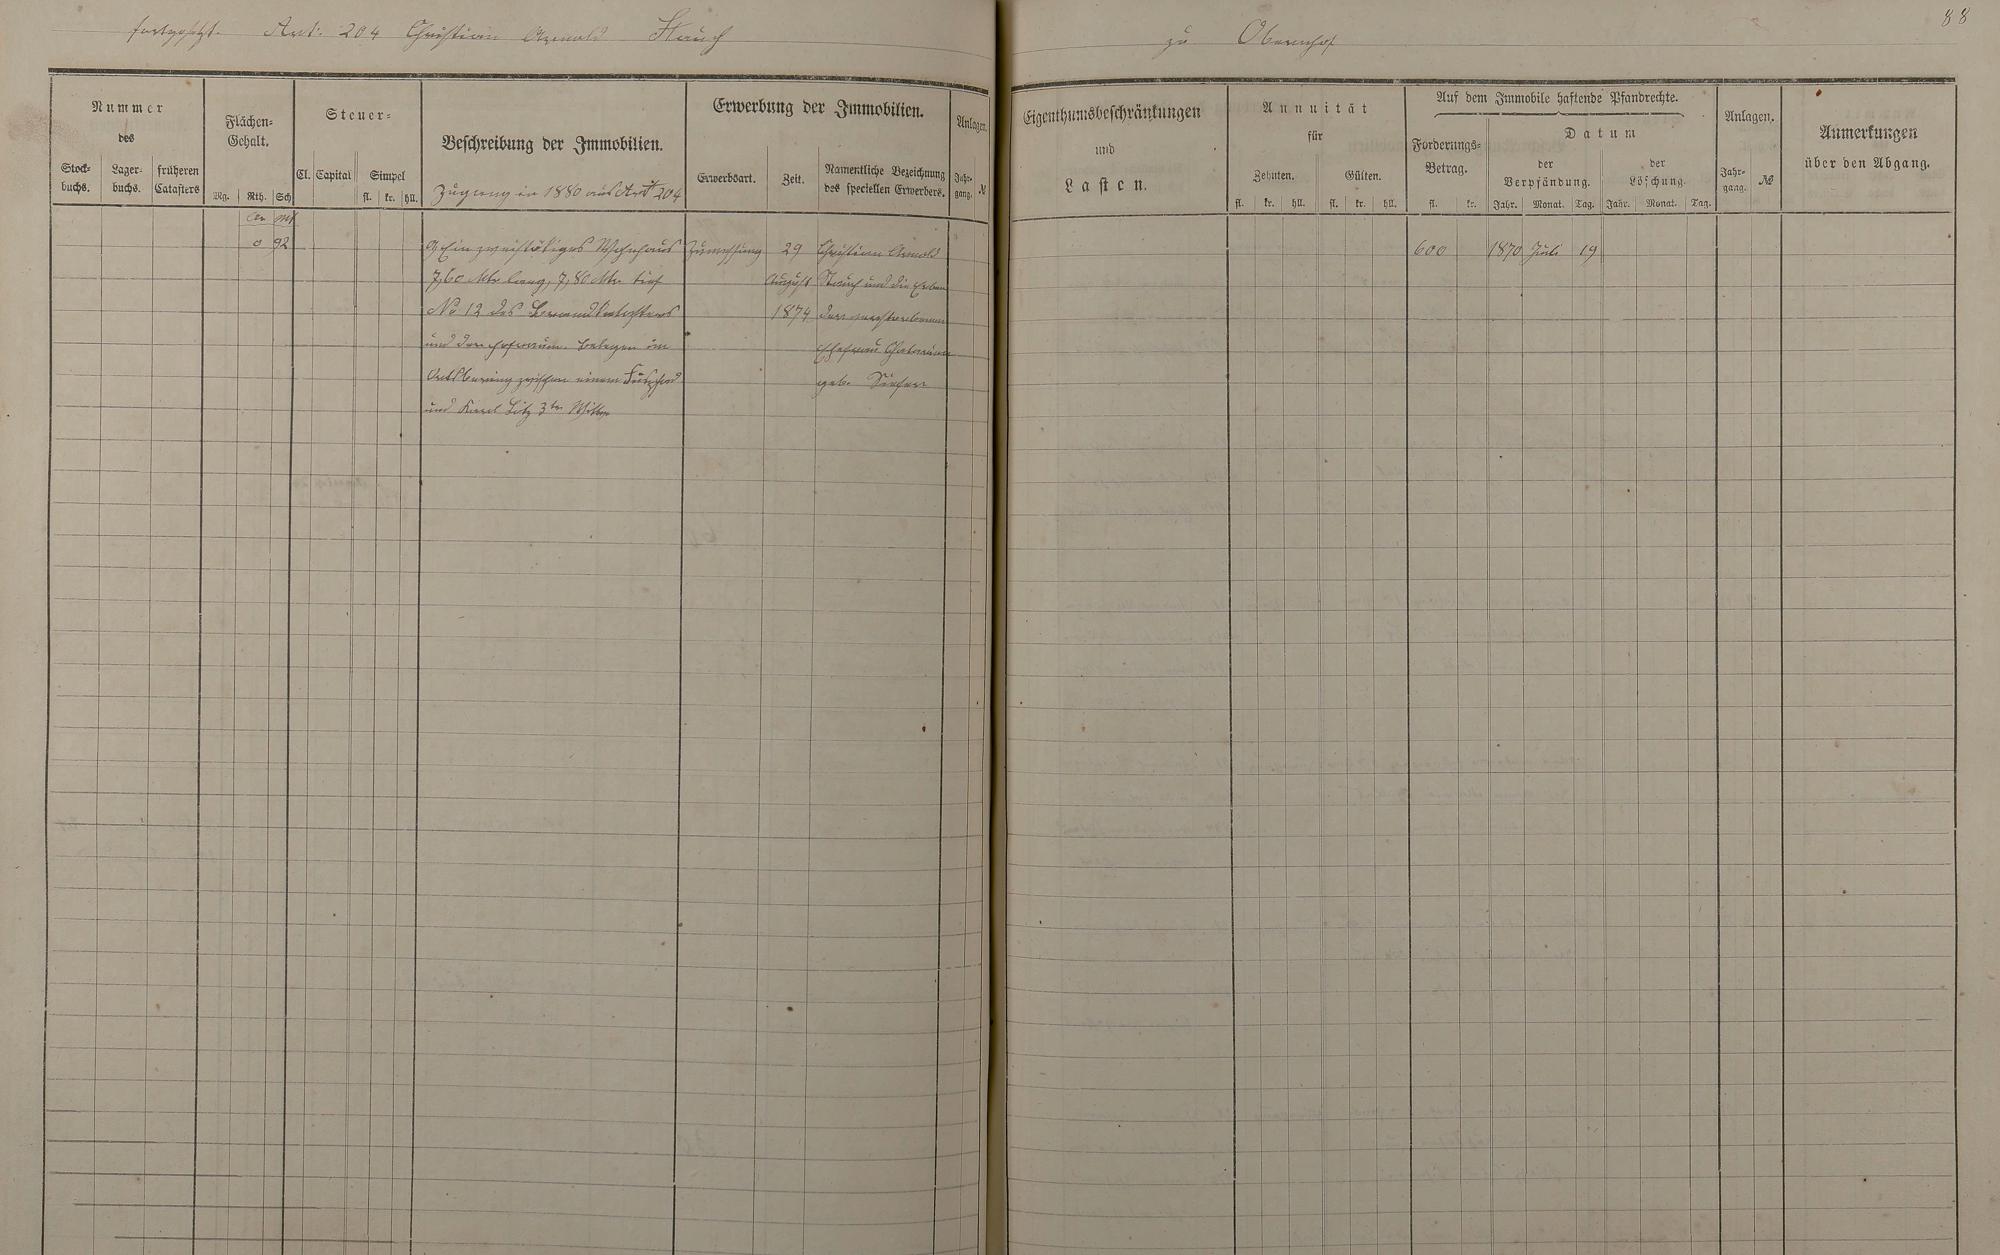 fortgesetzt. Art. 204 Christian Arnold Stauch
zu Obernhof
88
Nummer
des
Stock-
buchs.
Lager-
buchs.
früheren
Catasters
Flächen-
Gehalt.
Mg. Rth. Sch
Steuer-
Cl. Capital Simpel
fl. kr. hll.
Beschreibung der Immobilien.
Zugang in 1880 aus Art 204
Erwerbung der Immobilien.
Erwerbsart. Zeit.
Namentliche Bezeichnung
des speciellen Erwerbers.
Anlagen.
Jahr-
gang. №
Eigenthumsbeschränkungen
und
Lasten.
Annuität
für
Zehnten. Gülten.
fl. kr. hll. fl. kr. hll.
Auf dem Immobile haftende Pfandrechte.
Forderungs-
Betrag.
fl. kr.
Datum
der
Verpfändung.
der
Löschung.
Jahr. Monat. Tag. Jahr. Monat. Tag.
Anlagen.
Jahr-
gang. №
Anmerkungen
über den Abgang.
Ar
0 92
Ein zweistöckiges Wohnhaus
7,60 Mtr lang, 7,80 Mtr tief
No 12 des Brandkatasters
und der Hofraum. belegen im
Ortsbering zwischen einem Fußpfad
und Karl Litz 3ter Wittwe
29
August
1874
Christian Arnold
Stauch und die Erben
der verstorbenen
Ehefrau Catharina
geb.
600 1870 Juli 19